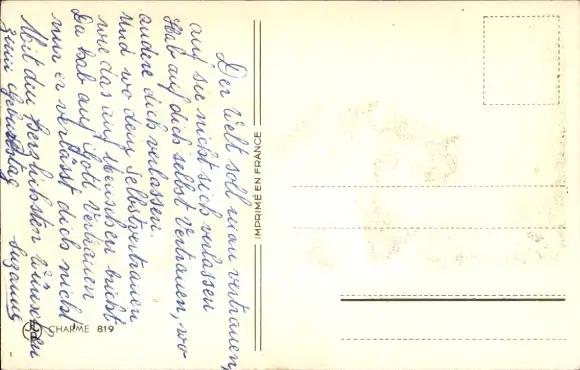 Der Welt soll man vertrauen,
auf sie nicht sich verlassen
Hab auf dich selbst Vertrauen, wo
andere dich verlassen.
Und wo dem Selbstvertrauen
wie das auf Menschen bricht
Da hab auf Gott Vertrauen
nur er verlässt dich nicht
Mit den herzlichsten Wünschen
zum Geburtstag
IMPRIMÉ EN FRANCE
CHARME 819